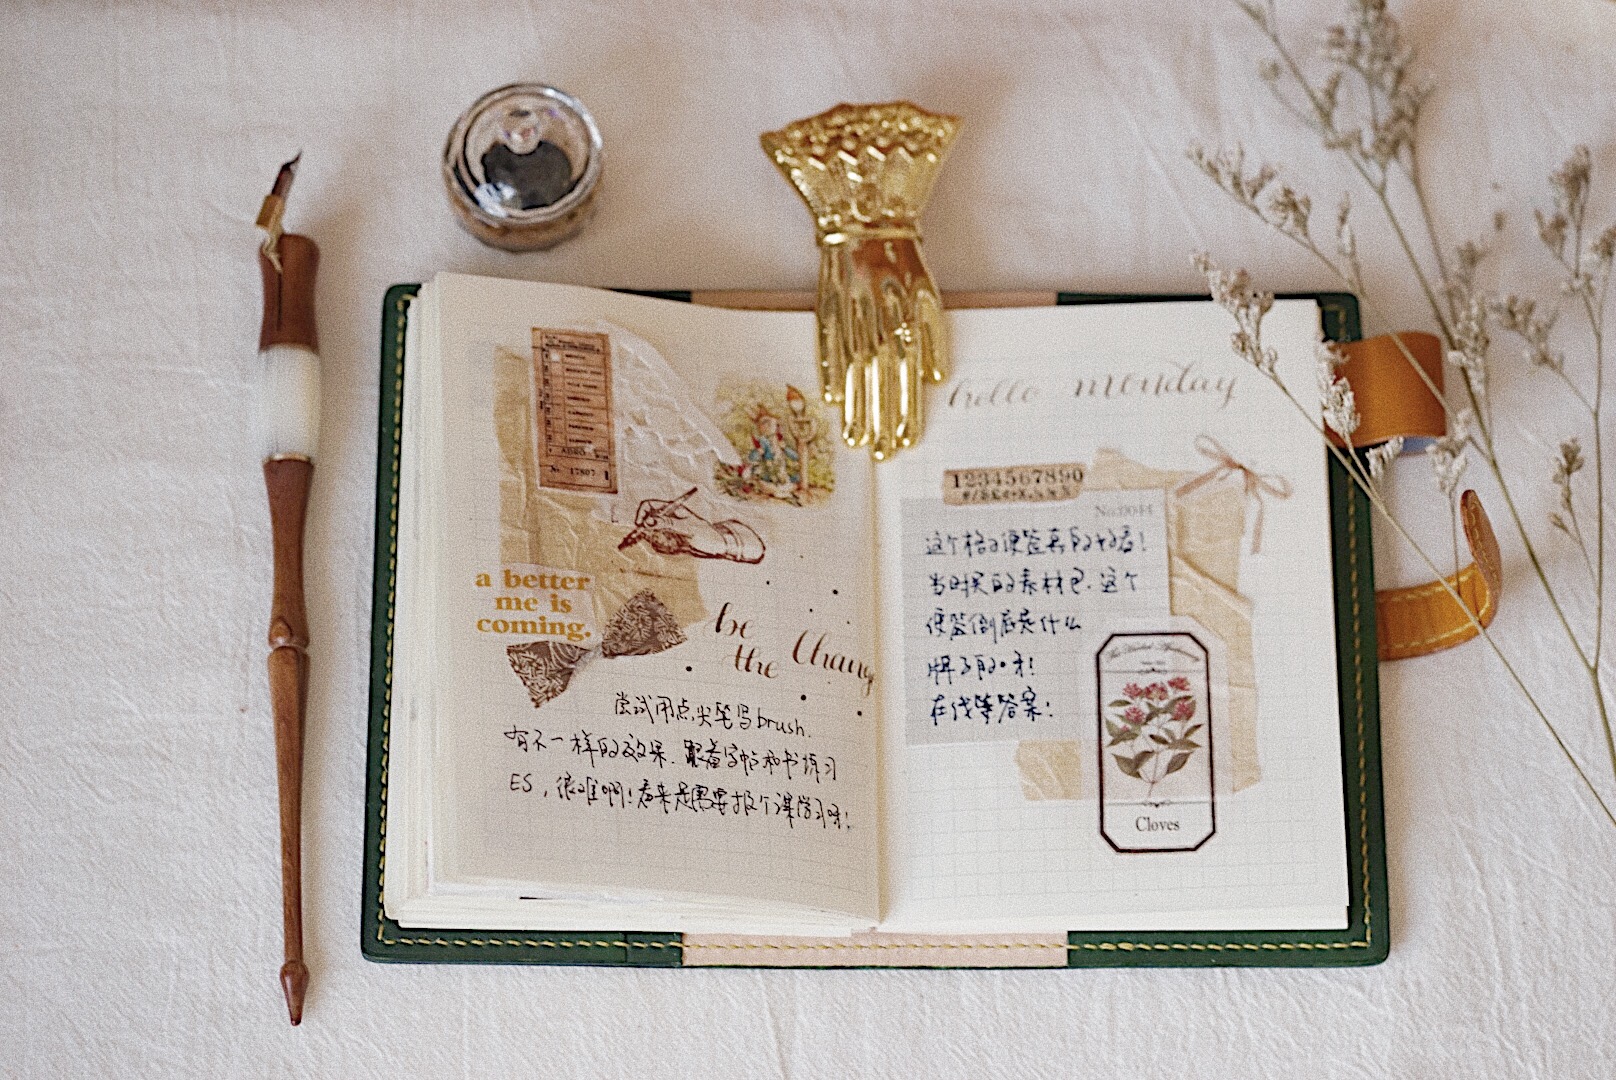 ADRO
No. 17807
a better
me is
coming.
be
the Chang
尝试用点尖笔写brush.
有不一样的效果.跟着字帖和书练习
ES，很难啊！看来是需要报个课学习呀！
hello monday
1234567890
No.0044
这个格子便签真的好看！
当时买的素材包.这个
便签倒底是什么
牌子的·才！
在线等答案！
Cloves